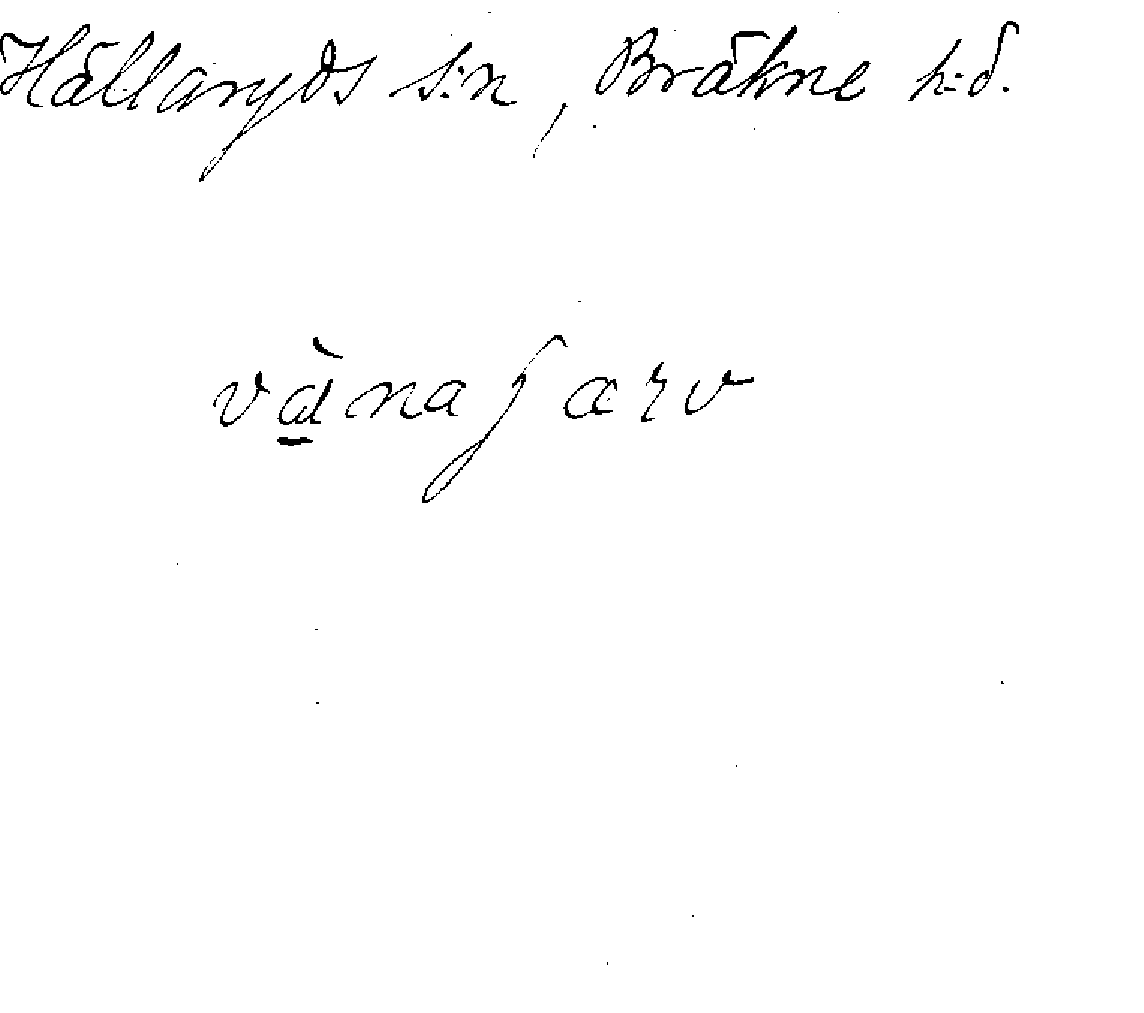 Hällaryds s:n, Bräkne h:d.
vɑ̠̀naʃærv